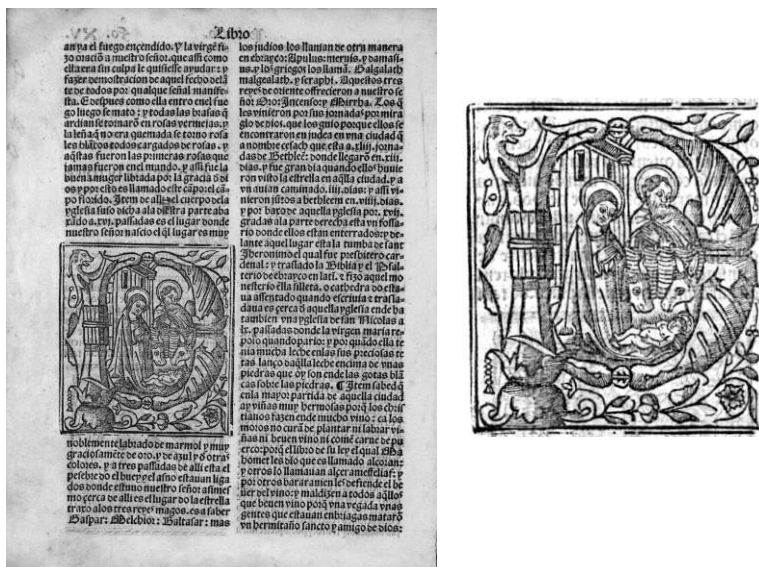 Libro
an ya el fuego encendido. Y la virgē fi-
zo oraciō a nuestro señor. que assi como
ella era sin culpa le quisiesse ayudar: y
fazer demostracion de aquel fecho delā
te de todos por qualque señal manifie-
sta. E despues como ella entro en el fue
go luego se mato: y todas las brasas q̄
ardian se tornarō en rosas vermejas. y
la leña aq̄ no era quemada se torno rosa
les blācos todos cargados de rosas. y
aq̄stas fueron las primeras rosas que
jamas fueron en el mundo. y assi fue la
buena muger librada por la gracia d̄ di
os y por esto es llamado este cāpo: el cā
po florido. Item de alli el cuerpo dela
yglesia suso dicha ala diestra parte aba
xado a .xvj. passadas es el lugar donde
nuestro señor nascio el q̄l lugar es muy
noblemente labrado de marmol y muy
graciosamēte de oro. y de azul y d̄ otras
colores. y a tres passadas de alli esta el
pesebre do el buey y el asno estauan liga
dos donde estuuo nuestro señor asimes
mo çerca de alli es el lugar do la estrella
traxo alos tres reyes magos. es a saber
Gaspar: Melchior: Baltasar: mas
los judios los llaman de otra manera
en ebrayco: Apulus: meruis. y damasi-
us. y los griegos los llamā. Galgalath
malgealath. y seraphi. Aquestos tres
reyes de oriente offrecieron a nuestro se
ñor Oro: Incenso: y Mirrha. Los q̄
les vinieron por sus jornadas por mira
glo de dios. que los guio porque ellos se
encontraron en judea en vna ciudad q̄
a nombre cesach que esta a .xlij. jorna-
das de Bethleē: donde llegarō en .xiij.
dias. y fue gran dia quando ellos huuie
ron visto la estrella en aq̄lla ciudad. y a
vn auian caminado .iiij. dias: y assi vi-
nieron jūtos a bethleem en .viiij. dias.
y por baxo de aquella yglesia por .xvij.
gradas ala parte derecha esta vn fossa-
rio donde ellos estan enterrados: y de-
lante aquel lugar esta la tumba de sant
Jheronimo el qual fue presbitero car-
denal: y traslado la Biblia y el Psal-
terio de ebrayco en latī. & fizo aquel mo
nesterio ēlla silleta. o cathedra do esta-
ua assentado quando escriuia & trasla-
daua es çerca d̄ aquella yglesia ende ha
tambien vna yglesia de san Nicolas a
lx. passadas donde la virgen maria re-
poso quando pario: y por quādo ella te
nia mucha leche en las sus preciosas te
tas lanço daq̄lla leche encima de vnas
piedras que oy son ende las gotas blā
cas sobre las piedras. ¶ Item sabed q̄
en la mayor partida de aquella ciudad
ay viñas muy hermosas porq̄ los chris
tianos fazen ende mucho vino: ca los
moros no curā de plantar ni labrar vi-
ñas ni beuen vino ni comē carne de pu
erco: porq̄ el libro de su ley el qual Ma
homet les dio que es llamado alcoran:
y otros lo llamauan alçar ameffelias: y
por otros bararanien les defiende el be
uer del vino: y maldizen a todos aq̄llos
que beuen vino porq̄ vna vegada vnas
gentes que estauan enbriagas matarō
vn hermitaño sancto y amigo de dios: